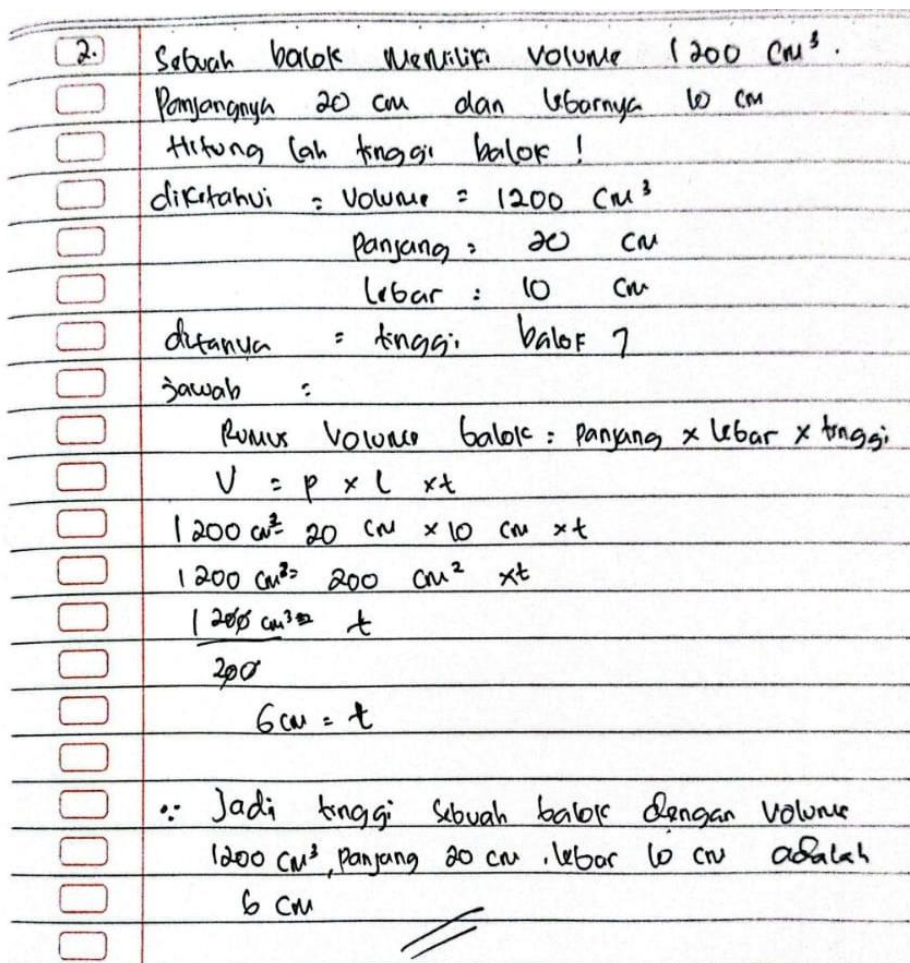 2. Sebuah balok memiliki volume 1200 cm³.
Panjangnya 20 cm dan lebarnya 10 cm
Hitung lah tinggi balok !
diketahui = Volume = 1200 cm³
Panjang = 20 cm
lebar = 10 cm
ditanya = tinggi balok ?
jawab =
Rumus Volume balok = Panjang × lebar × tinggi
V = p × l × t
1200 cm³ = 20 cm × 10 cm × t
1200 cm³ = 200 cm² × t
1200 cm³ = t
200
6 cm = t
∴ Jadi tinggi sebuah balok dengan volume
1200 cm³, panjang 20 cm, lebar 10 cm adalah
6 cm